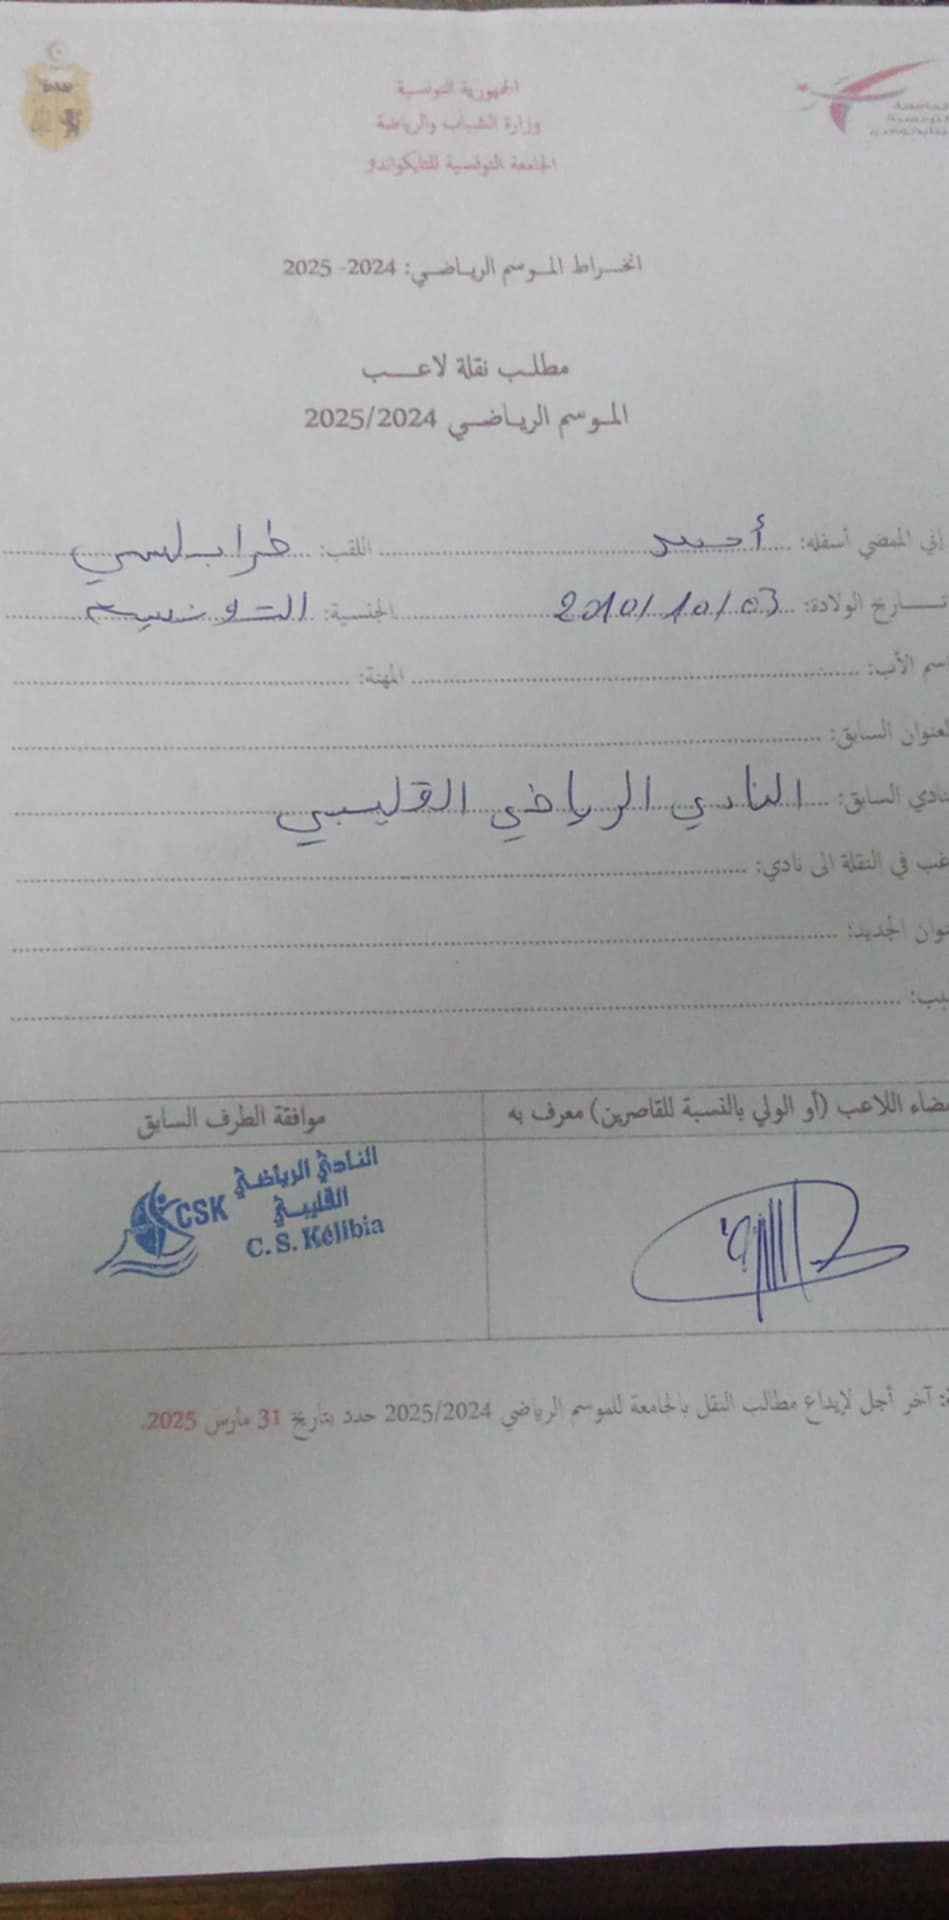 الجمهورية التونسية
وزارة الشباب والرياضة
الجامعة التونسية للتايكواندو
انخراط الموسم الرياضي: 2024- 2025
مطلب نقلة لاعب
الموسم الرياضي 2025/2024
إني الممضي أسفله: أحمد اللقب: طرابلسي
تاريخ الولادة: 2010/10/03 الجنسية: التونسية
اسم الأب: المهنة:
العنوان السابق:
نادي السابق: النادي الرياضي القليبي
غب في النقلة الى نادي:
نوان الجديد:
ضاء اللاعب (أو الولي بالنسبة للقاصرين) معرف به موافقة الطرف السابق
CSK النادي الرياضي
القليبي
C. S. Kélibia
آخر أجل لإيداع مطالب النقل بالجامعة للموسم الرياضي 2025/2024 حدد بتاريخ 31 مارس 2025.